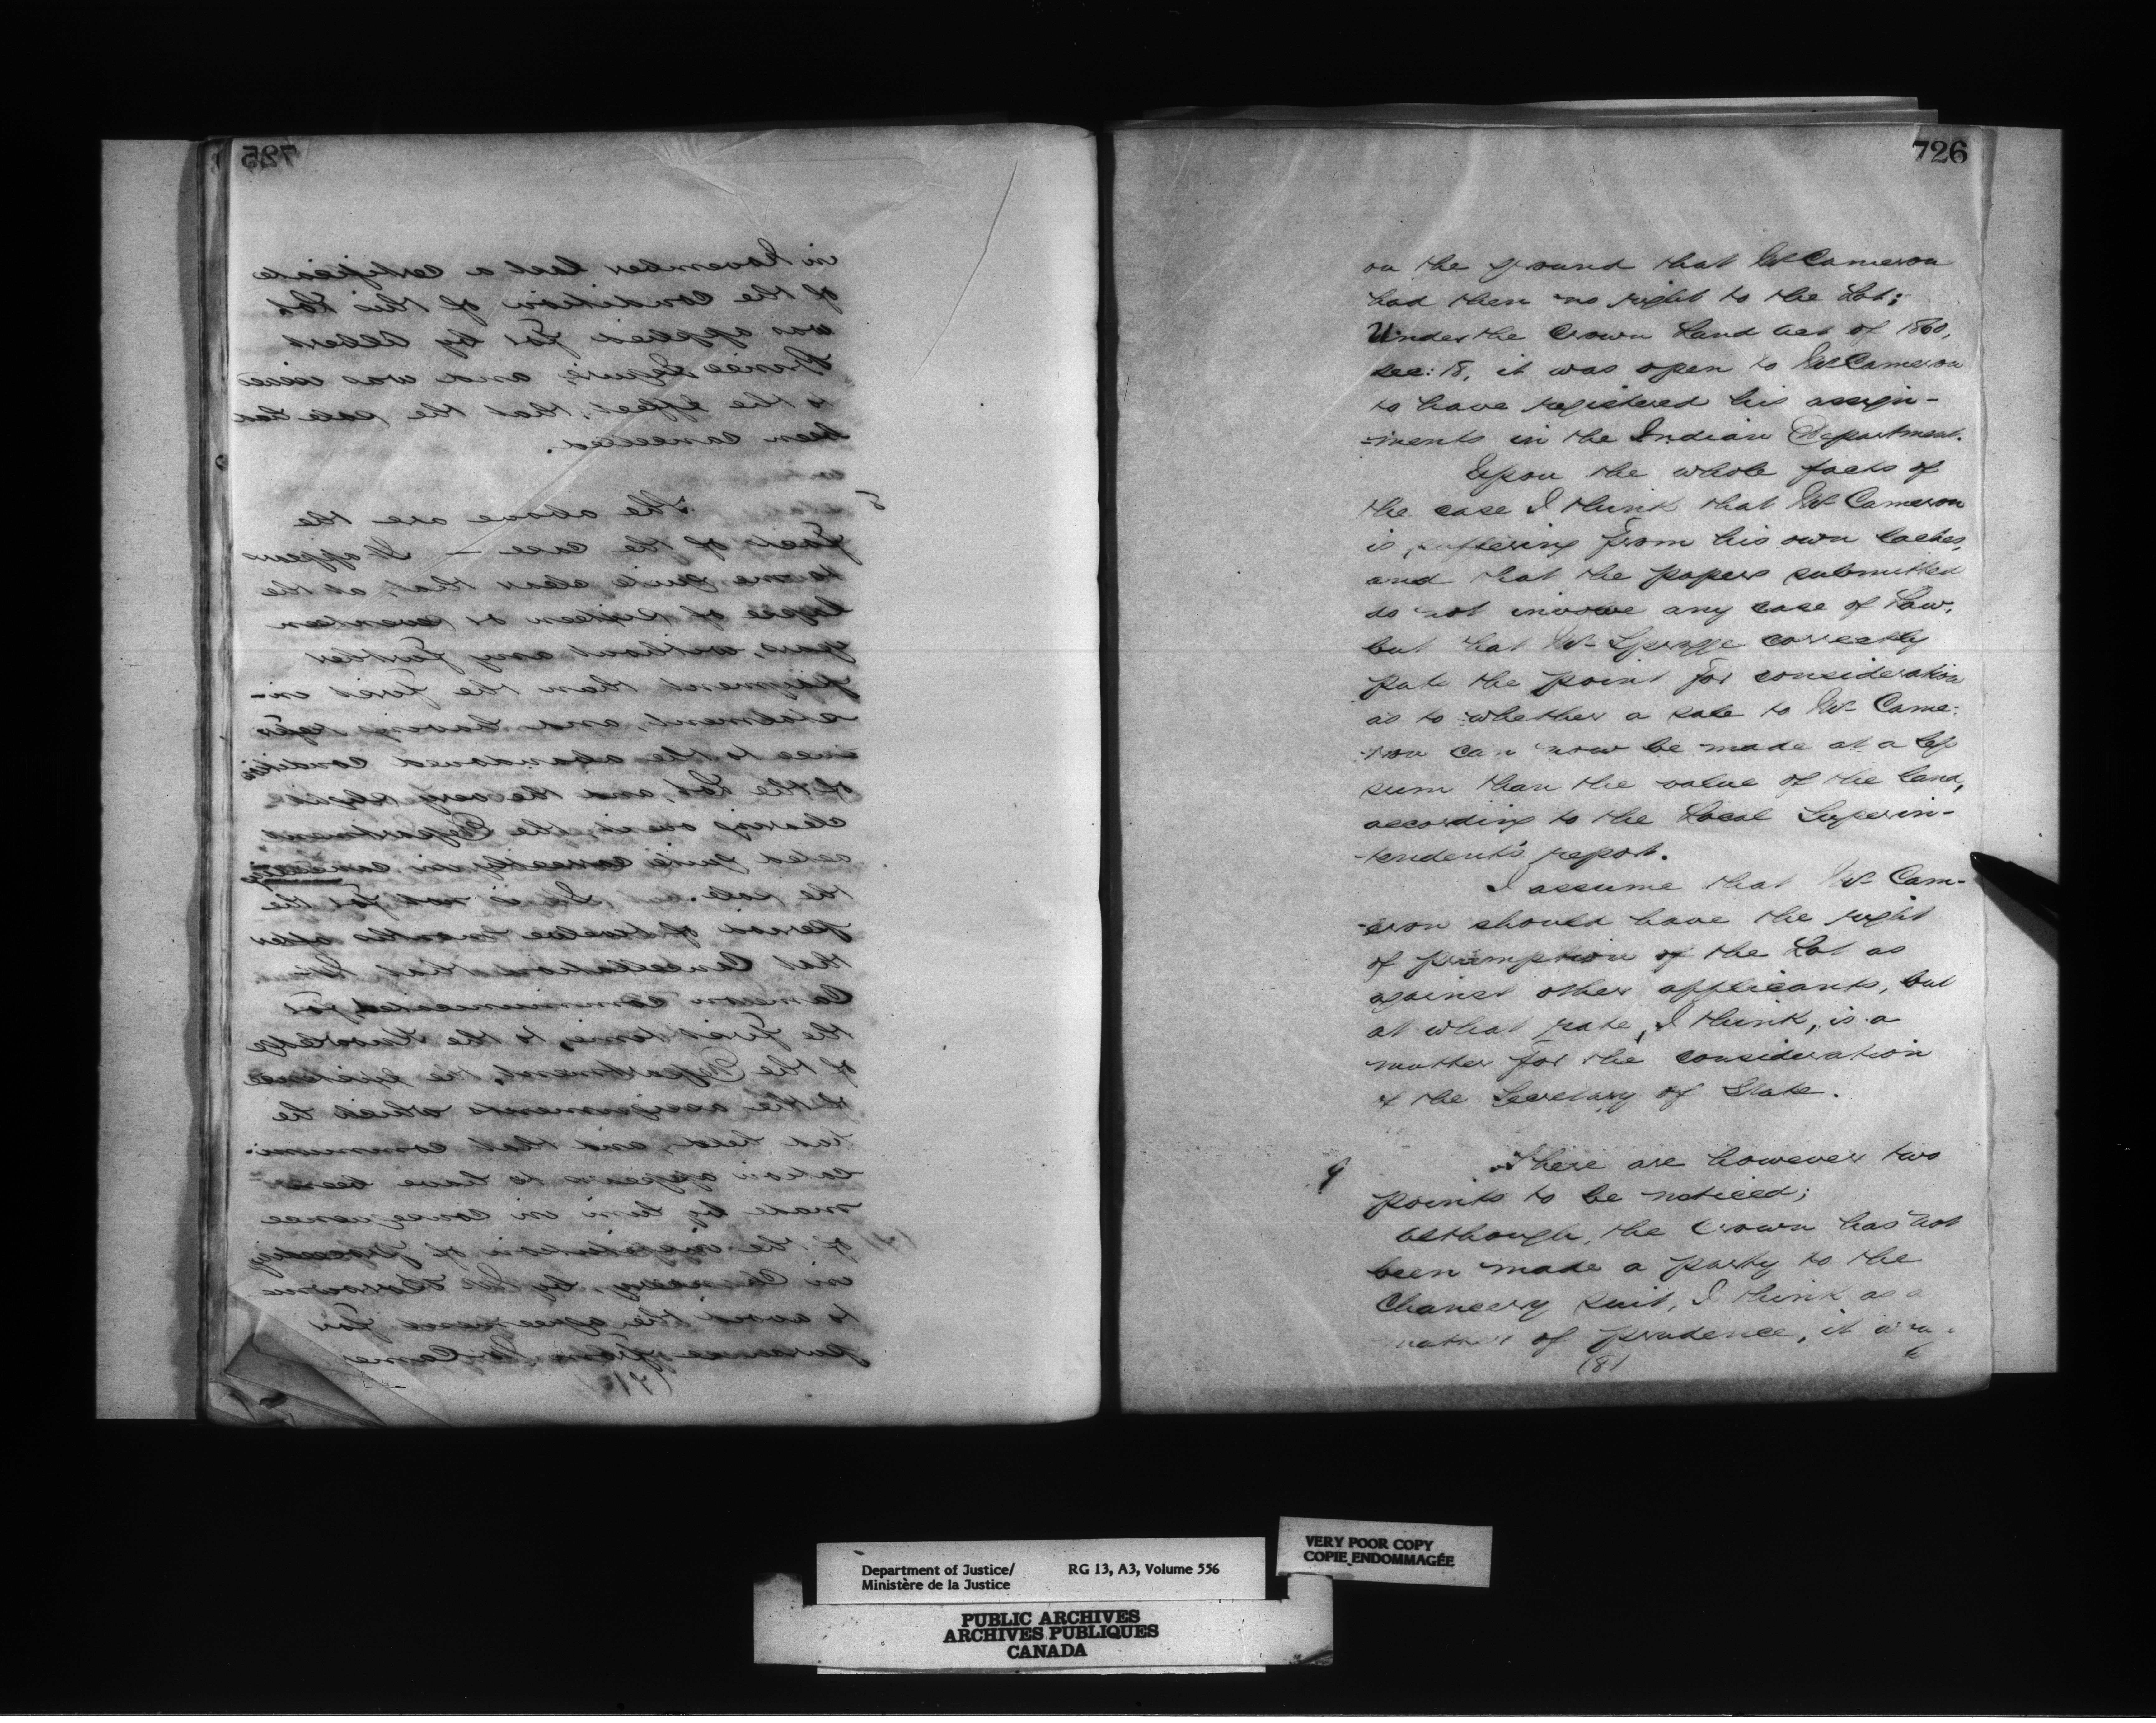 725
in November last a certificate
of the condition of this Lot
was applied for by Albert
Prince Esquire, and was issued
to the effect, that the sale had
been cancelled.
8
The above are the
facts of the case — It appears
to me quite clear that, at the
lapse of sixteen or seventeen
years, without any further
payment than the first in-
stalment, and having refer
ence to the abandoned condition
of the Lot, and the very
clearing on it, the Department
acted quite correctly in cancelling
the sale. It is not for the
period of twelve months after
that Cancellation that Mr
Cameron communicated, for
the first time, to the knowledge
of the Department, the existence
of the assignments which he
had held, and that communi-
cation appears to have been
made by him in consequence
of the institution of proceedings
in Chancery by
to avoid the agreement for
purchase from Mr Came
(7)
726
on the ground that Mr Cameron
had then no right to the Lot;
Under the Crown Land Act of 1860,
sec: 18, it was open to Mr Cameron
to have registered his assign-
-ments in the Indian Department.
Upon the whole facts of
the case I think that Mr Cameron
is suffering from his own laches,
and that the papers submitted
do not involve any case of Law,
but that Mr Spragge correctly
puts the point for consideration
as to whether a sale to Mr Came-
-ron can now be made at a less
sum than the value of the land,
according to the Local Superin-
-tendent's report.
I assume that Mr Cam-
-eron should have the right
of preemption of the Lot as
against other applicants, but
at what rate, I think, is a
matter for the consideration
of the Secretary of State.
9
There are however two
points to be noticed;
although, the Crown has not
been made a party to the
Chancery suit, I think as a
matter of prudence, it
(8)
Department of Justice/
Ministère de la Justice
RG 13, A3, Volume 556
VERY POOR COPY
COPIE ENDOMMAGÉE
PUBLIC ARCHIVES
ARCHIVES PUBLIQUES
CANADA